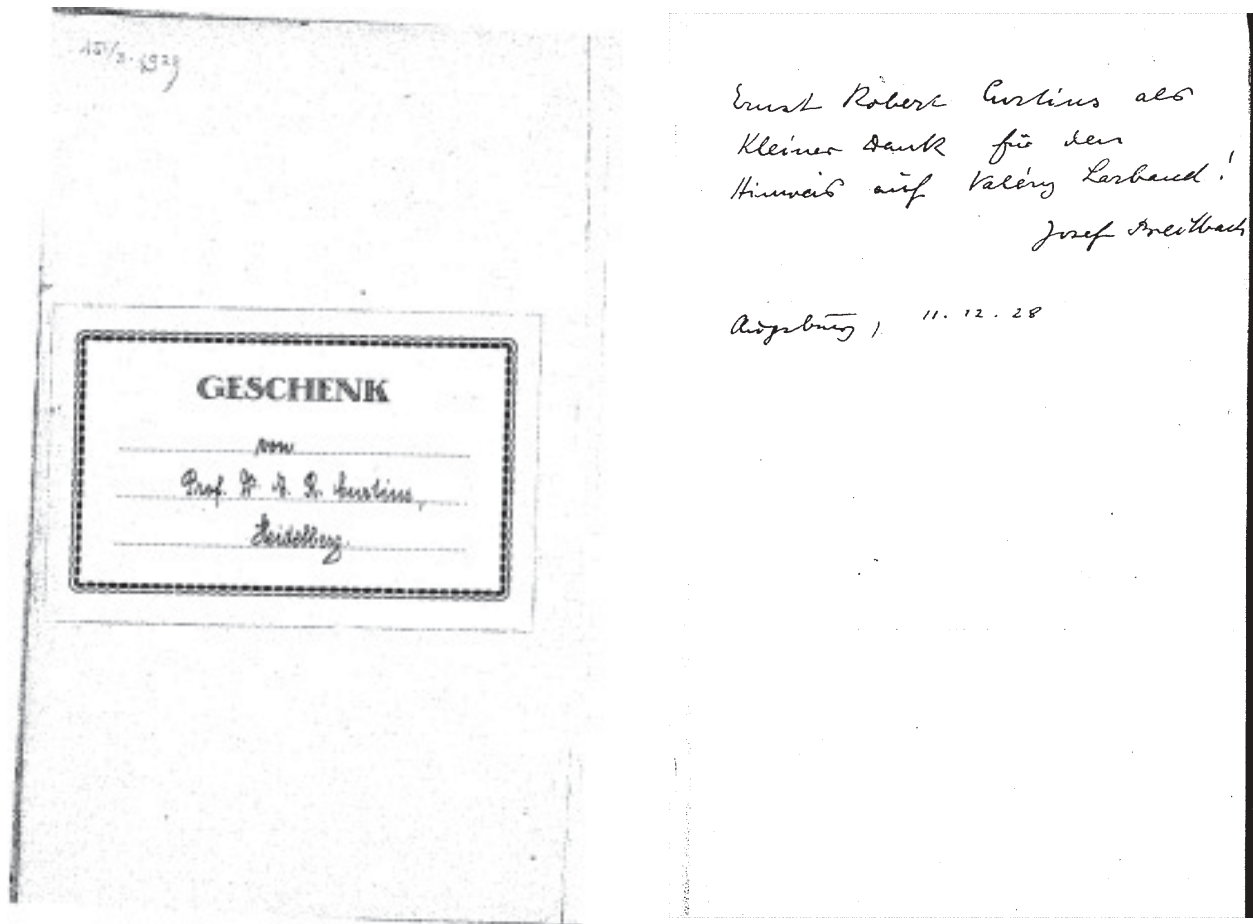 15/3. 1929
GESCHENK
von
Prof. Dr. E. R. Curtius,
Heidelberg.
Ernst Robert Curtius als
kleiner Dank für den
Hinweis auf Valéry Larbaud!
Josef Breitbach
Augsburg, 11. 12. 28